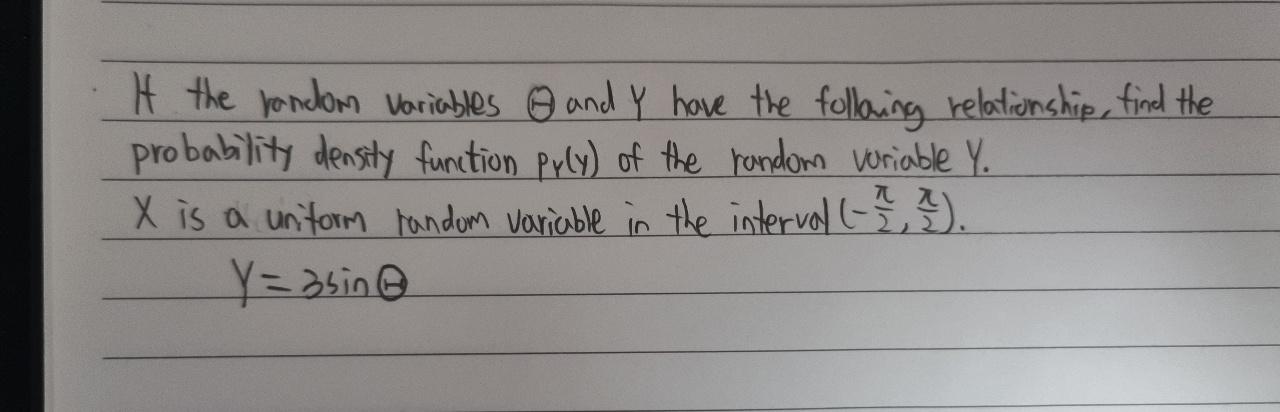 If the random variables Θ and Y have the following relationship, find the
probability density function pY(y) of the random variable Y.
X is a uniform random variable in the interval (-π/2, π/2).
Y=3sinΘ